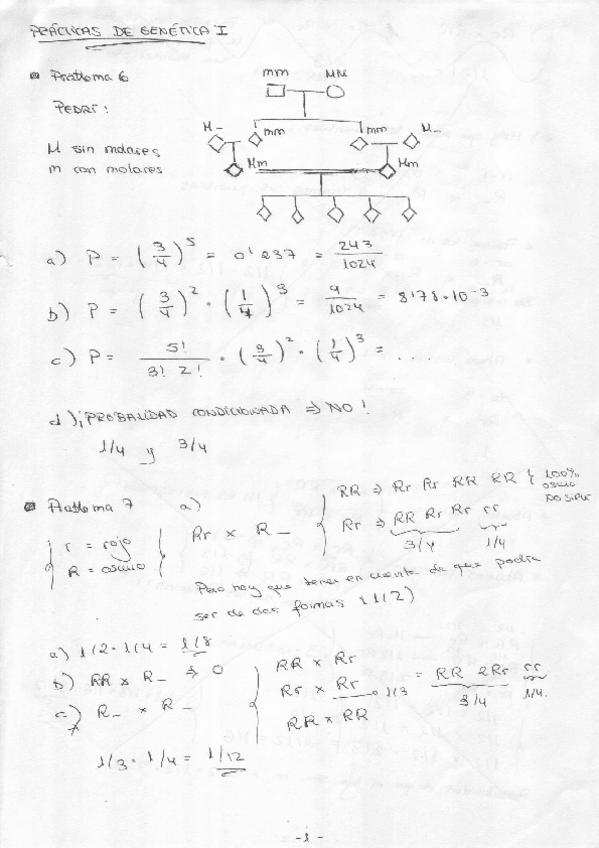 PRÁCTICAS DE GENÉTICA I
Problema 6
mm MM
PEDRI:
M_ mm mm M_
M sin molares
m con molares
Mm Mm
a) P = (3/4)^5 = 0'237 = 243/1024
b) P = (3/4)^2 · (1/4)^3 = 9/1024 = 8'78·10^-3
c) P = 5!/3! 2! · (3/4)^2 · (1/4)^3 = ...
d) ¡PROBALIDAD CONDICIONADA ⇒ NO!
1/4 y 3/4
Problema 7 a)
RR ⇒ Rr Rr RR RR { 100% oscuro
r = rojo
R = oscuro
Rr x R_
Rr ⇒ RR Rr Rr rr
3/4 1/4
Pero hay que tener en cuenta de que podría
ser de dos formas (1/2)
a) 1/2 · 1/4 = 1/8
b) RR x R_ ⇒ 0
c) R_ x R_
RR x Rr
Rr x Rr → 1/3 = RR 2Rr rr
3/4 1/4.
RR x RR
1/3 · 1/4 = 1/12
-1-